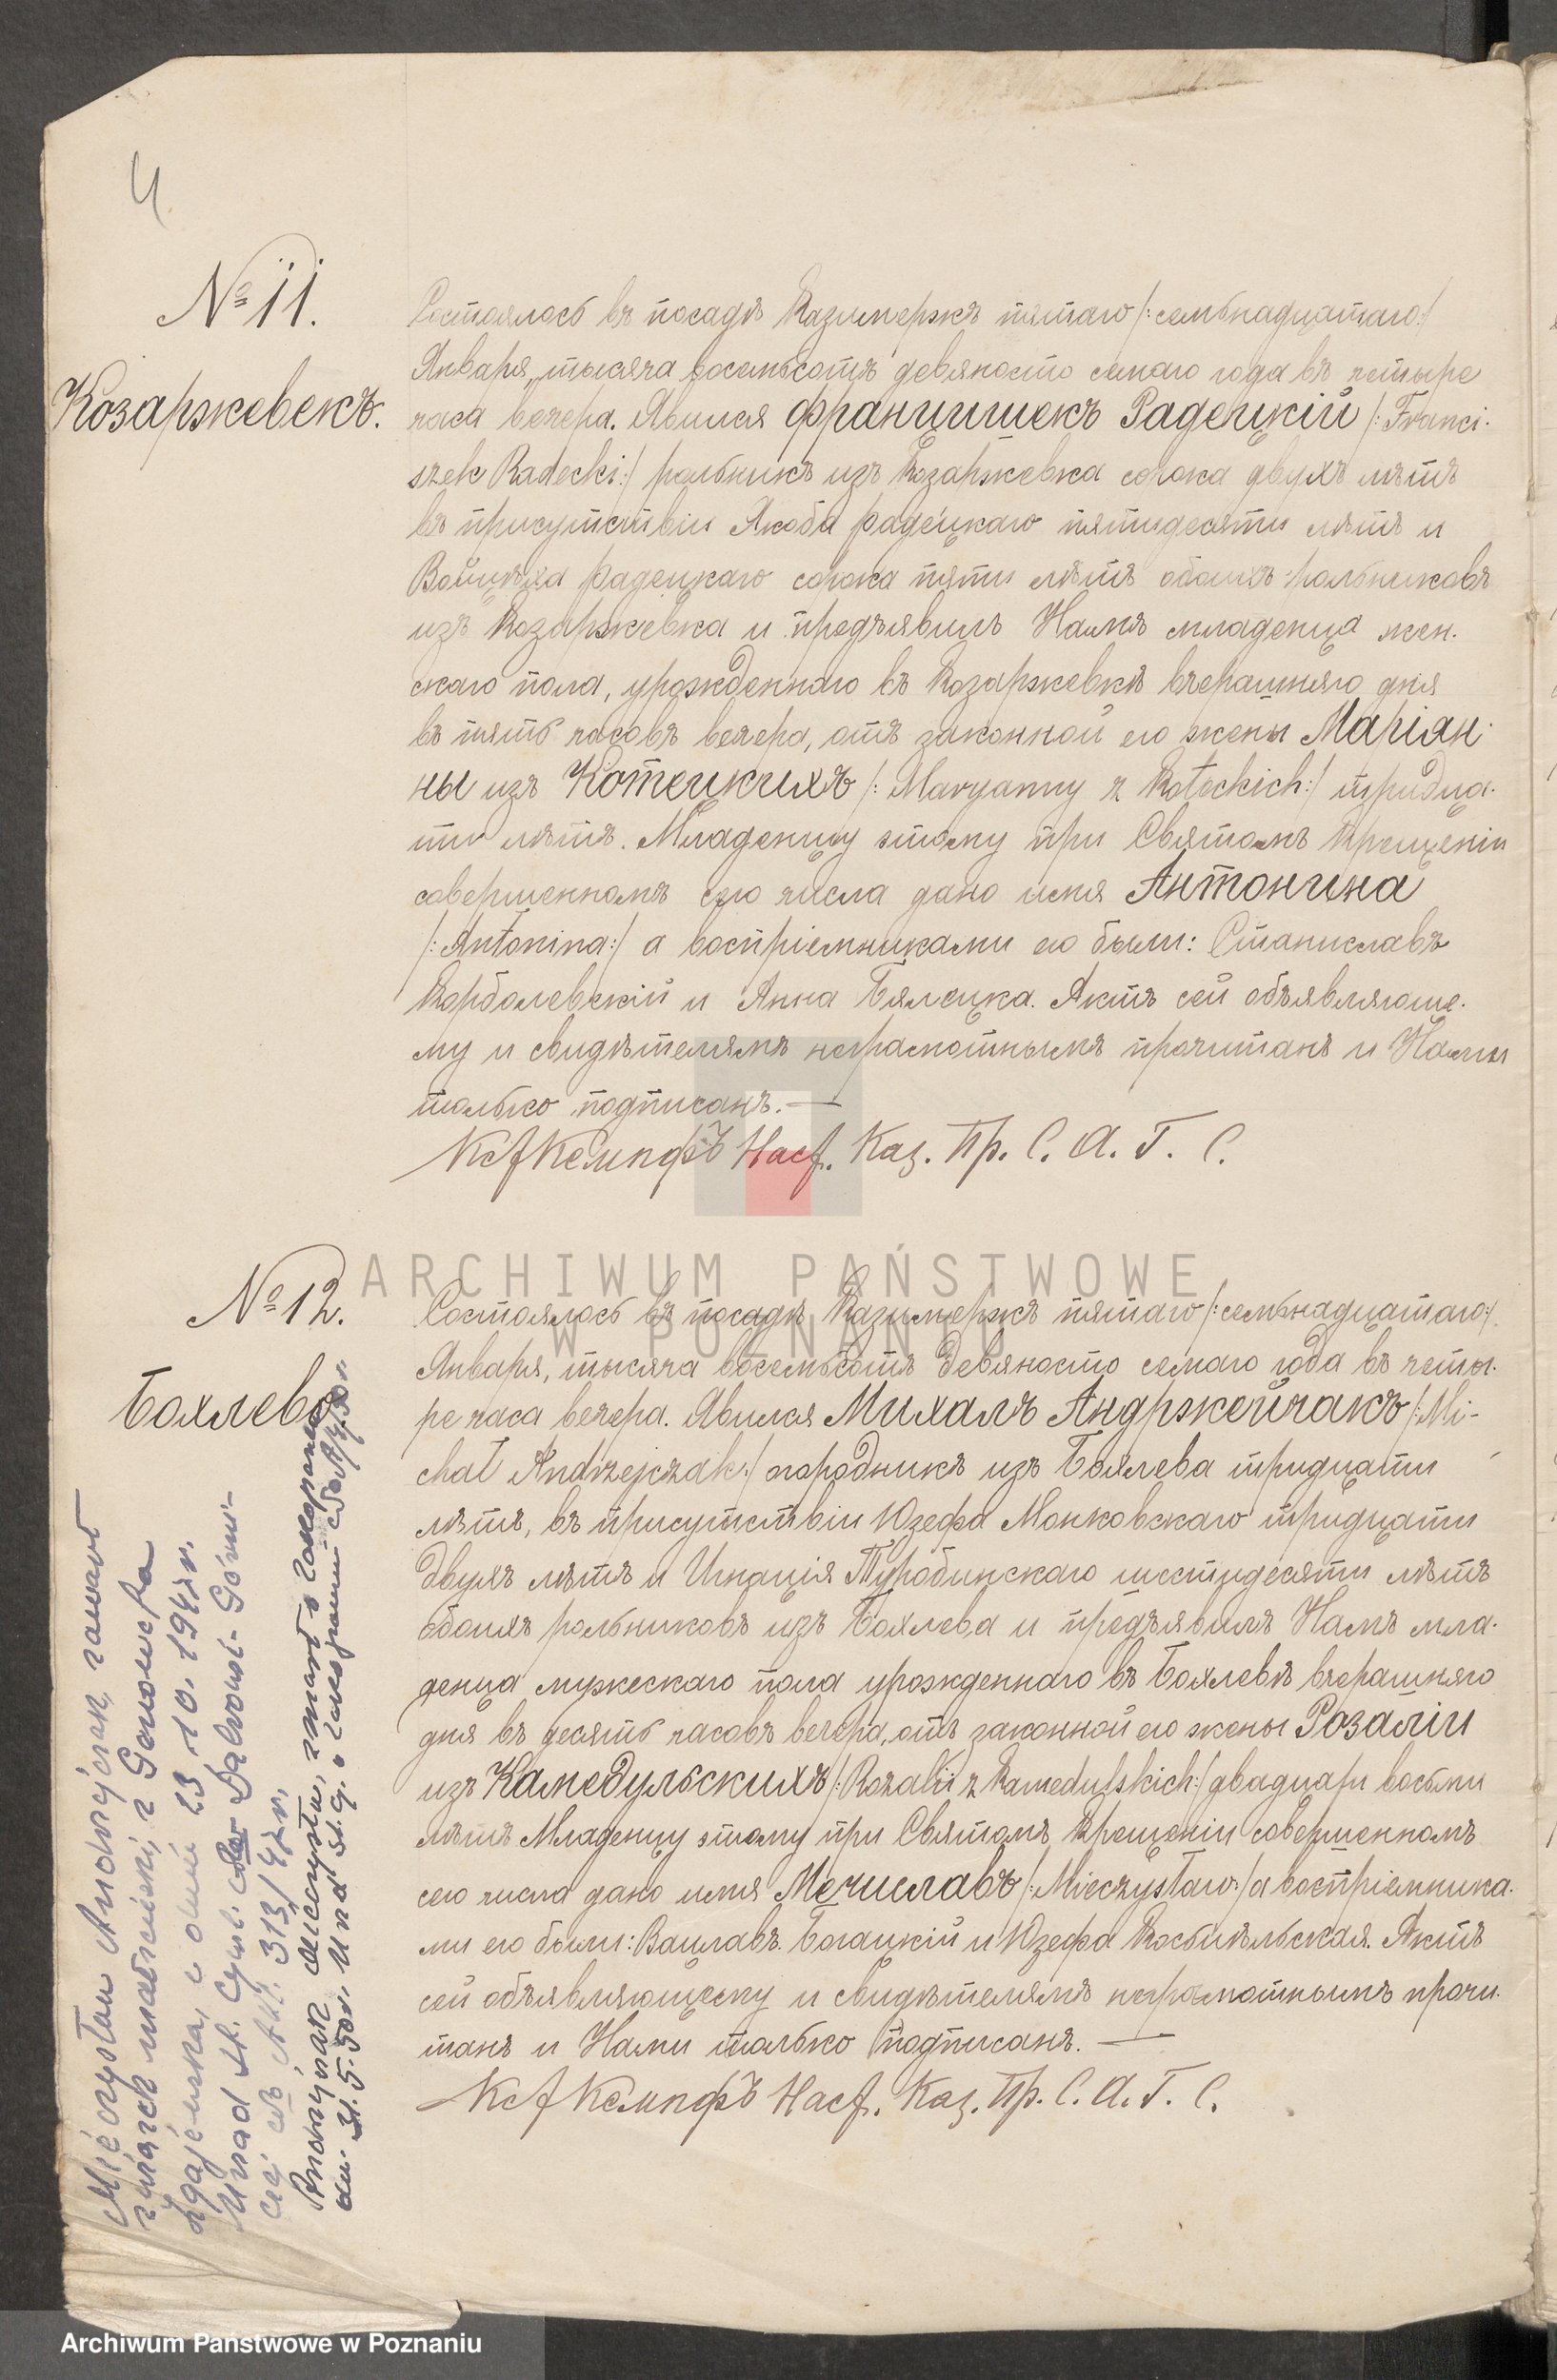 4
№ 11.
Козаржевекъ.
Состоялось въ посадѣ Казимержѣ пятаго /:семьнадцатаго:/
Января, тысяча восемьсотъ девяносто семаго года въ четыре
часа вечера. Явился Францишекъ Радецкій /:Franci-
szek Radecki:/ рольникъ изъ Козаржевка сорока двухъ лѣтъ
въ присутствіи Якоба Радецкаго пятидесяти лѣтъ и
Войцѣха Радецкаго сорока пяти лѣтъ обоихъ рольниковъ
изъ Козаржевка и предъявилъ Намъ младенца жен-
скаго пола, урожденнаго въ Козаржевкѣ вчерашняго дня
въ пять часовъ вечера, отъ законной его жены Маріан-
ны изъ Котецкихъ /:Maryanny z Koteckich:/ тридца-
ти лѣтъ. Младенцу этому при Святомъ Крещеніи
совершенномъ сего числа дано имя Антонина
/:Antonina:/ а воспріемниками его были: Станиславъ
Корболевскій и Анна Бялецка. Актъ сей объявляюще-
му и свидѣтелямъ неграмотнымъ прочитанъ и Нами
только подписанъ.—
Кс А Кемпфъ Наст. Каз. Пр. С. А. Г. С.
ARCHIWUM PAŃSTWOWE
W POZNANIU
№ 12.
Бохлево
Состоялось въ посадѣ Казимержѣ пятаго /:семьнадцатаго:/
Января, тысяча восемьсотъ девяносто семаго года въ четы-
ре часа вечера. Явился Михалъ Андржейчакъ /:Mi-
chał Andrzejczak:/ огородникъ изъ Бохлева тридцати
лѣтъ, въ присутствіи Юзефа Монковскаго тридцати
двухъ лѣтъ и Игнація Туробинскаго шестидесяти лѣтъ
обоихъ рольниковъ изъ Бохлева и предъявилъ Намъ мла-
денца мужескаго пола урожденнаго въ Бохлевѣ вчерашняго
дня въ десять часовъ вечера, отъ законной его жены Розаліи
изъ Камедульскихъ /:Rozalii z Kamedulskich:/ двадцати восьми
лѣтъ Младенцу этому при Святомъ Крещеніи совершенномъ
сего числа дано имя Мечиславъ /:Mieczysław:/ а воспріемника-
ми его были: Вацлавъ Богацкій и Юзефа Косьцѣльская. Актъ
сей объявляющему и свидѣтелямъ неграмотнымъ прочи-
танъ и Нами только подписанъ.—
Кс А Кемпфъ Наст. Каз. Пр. С. А. Г. С.
Mieczysław Andrzejczak zawarł
związek małżeński z Genowefą
dnia 23.10.1947 r.
Urząd St. Cywil. Dąbrowa-Górni-
cza Akt. 313/47 r.
Andrzejczak Mieczysław, zmarł w Zakopanem
dn. 31.5.50r. Urząd St. C. w Zakopanem
Archiwum Państwowe w Poznaniu